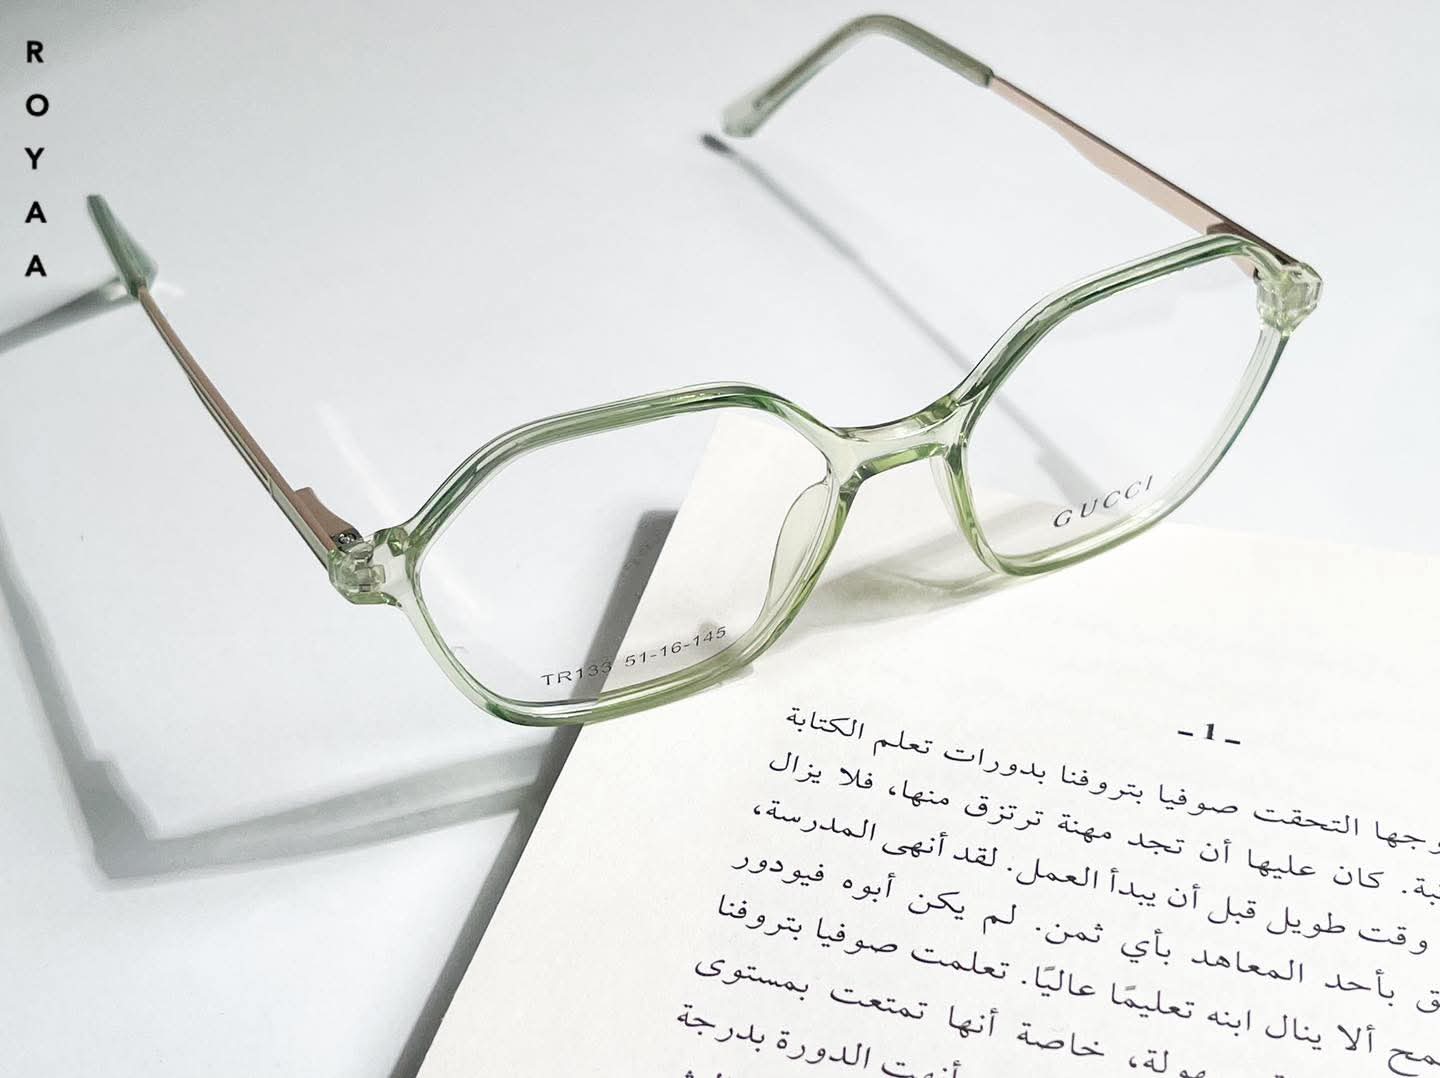 ROYAA
GUCCI
TR133 51-16-145
-1-
التحقت صوفيا بتروفنا بدورات تعلم الكتابة
كان عليها أن تجد مهنة ترتزق منها، فلا يزال
وقت طويل قبل أن يبدأ العمل. لقد أنهى المدرسة،
بأحد المعاهد بأي ثمن. لم يكن أبوه فيودور
ألا ينال ابنه تعليمًا عاليًا. تعلمت صوفيا بتروفنا
خاصة أنها تمتعت بمستوى
أنهت الدورة بدرجة